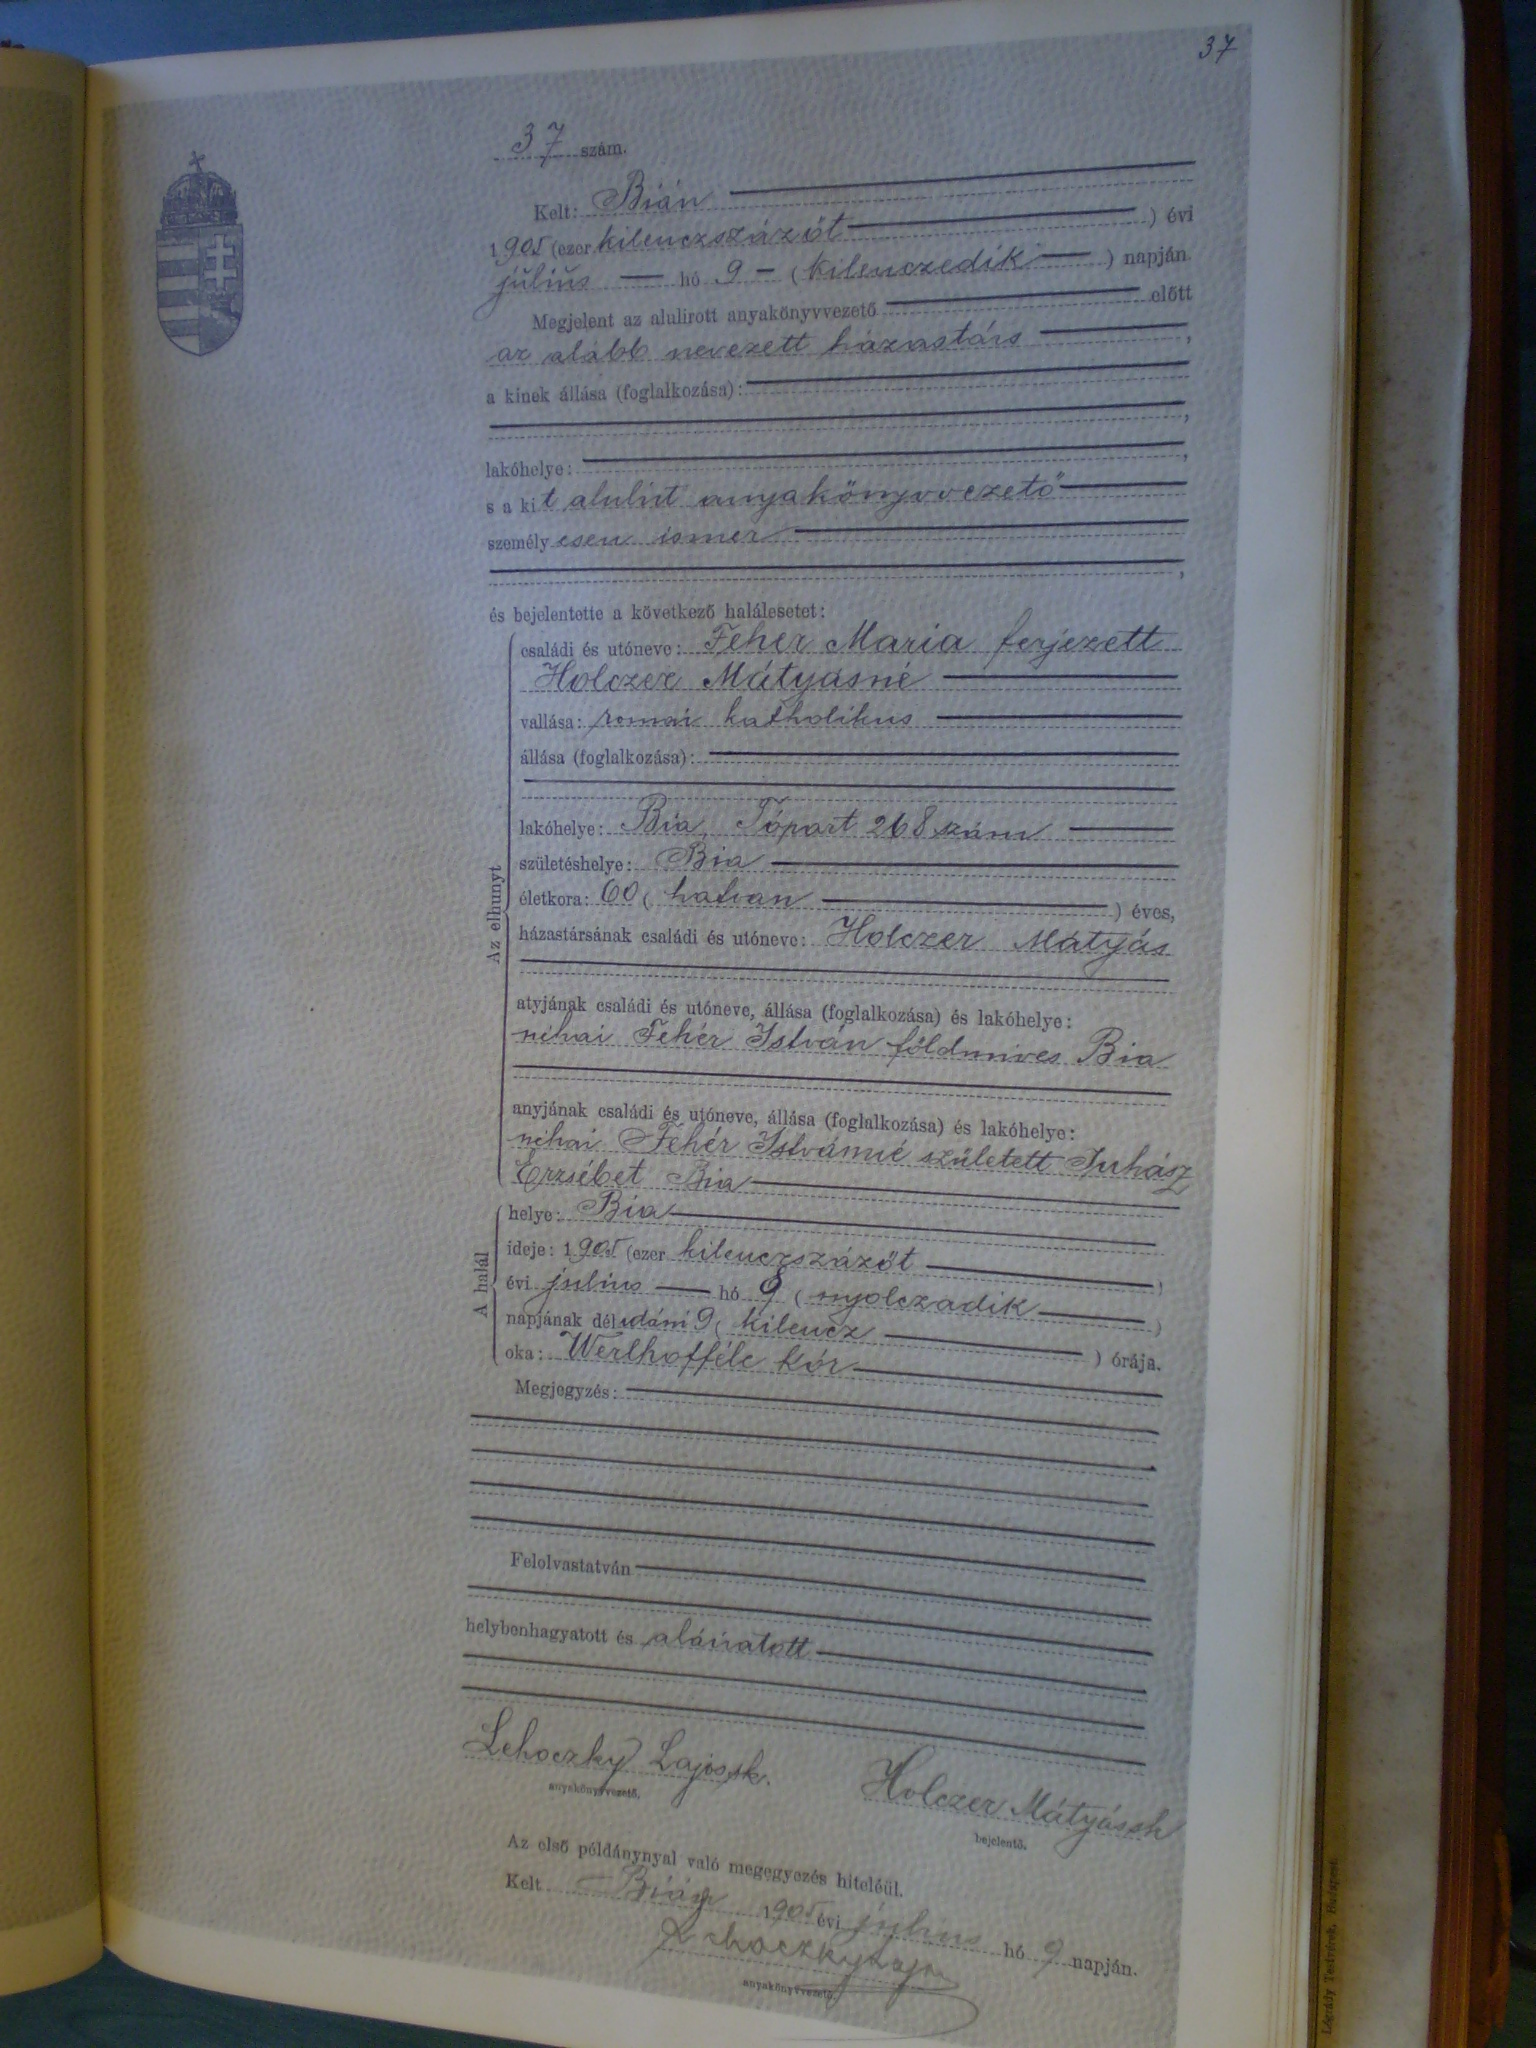 37
37 szám.
Kelt: Bián
1905 (ezer kilenczszázöt ) évi
július hó 9 - (kilenczedik ) napján.
Megjelent az alulirott anyakönyvvezető előtt
az alább nevezett házastárs ,
a kinek állása (foglalkozása):
,
lakóhelye: ,
s a kit alulirt anyakönyvvezető
személyesen ismer
,
és bejelentette a következő halálesetet:
Az elhunyt
családi és utóneve: Feher Maria ferjezett
Holczer Mátyásné
vallása: romai katholikus
állása (foglalkozása):
lakóhelye: Bia, Tópart 268 szám
születéshelye: Bia
életkora: 60 ( hatvan ) éves,
házastársának családi és utóneve: Holczer Mátyás
atyjának családi és utóneve, állása (foglalkozása) és lakóhelye:
néhai Fehér István földmives Bia
anyjának családi és utóneve, állása (foglalkozása) és lakóhelye:
néhai Fehér Istvánné született Juhász
Erzsébet Bia
A halál
helye: Bia
ideje: 1905 (ezer kilenczszázöt )
évi julius hó ( nyolczadik )
napjának délutáni 9 ( kilencz ) órája.
oka: Werlhofféle kór
Megjegyzés:
Felolvastatván
helybenhagyatott és aláiratott
Lehoczky Lajos sk.
anyakönyvvezető.
Holczer Mátyás sk
bejelentő.
Az első példánynyal való megegyezés hiteléül.
Kelt Bián 1905 évi július hó 9 napján.
Lehoczky Lajos
anyakönyvvezető.
Légrády Testvérek, Budapest